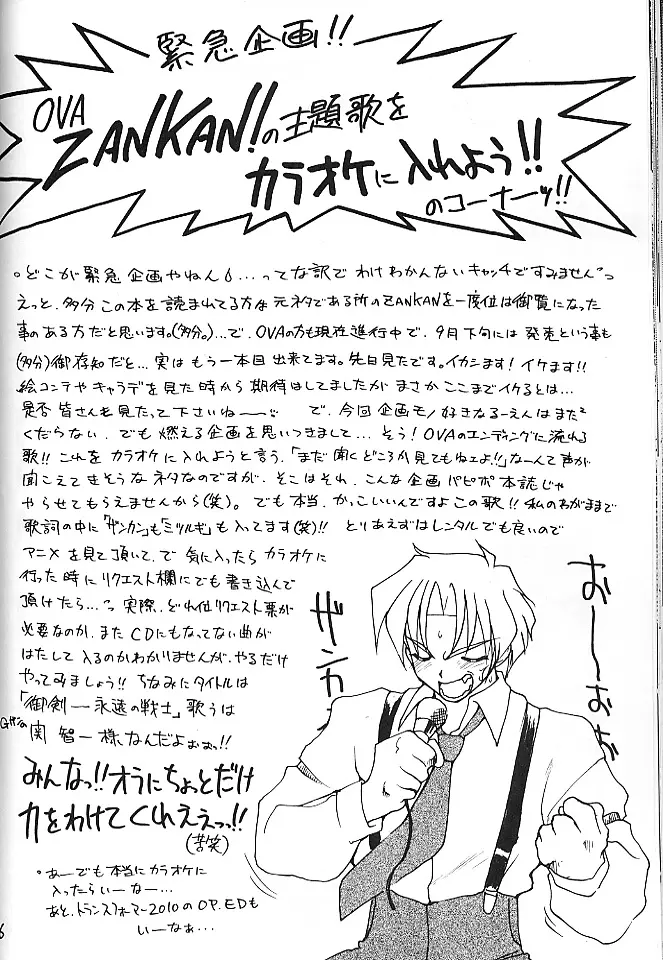 緊急企画!!
OVA
ZANKAN!の主題歌を
カラオケに入れよう!!
のコーナーッ!!
・どこが緊急企画やねん6...ってな訳でわけわかんないキャッチですみませんっ
えっと、多分この本を読まれてる方は元ネタである所のZANKANを一度位は御覧になった
事のある方だと思います。(多分。)...で、OVAの方も現在進行中で、9月下旬には発売という事も
(多分)御存知だと...実はもう一本目出来てます。先日見たです。イカシます!イケます!!
絵コンテやキャラデを見た時から期待はしてましたがまさかここまでイケるとは...
是非皆さんも見たって下さいねー で、今回企画モノ好きなるーえんはまた
くだらない、でも燃える企画を思いつきまして...そう!OVAのエンディングに流れる
歌!!これをカラオケに入れようと言う、「まだ聞くどころか見てもねェよ!!」なーんて声が
聞こえてきそうなネタなのですが、そこはそれ、こんな企画パピポ本誌じゃ
やらせてもらえませんから(笑)。でも本当、かっこいいんですよこの歌!!私のわがままで
歌詞の中に「ザンカン」も「ミツルギ」も入ってます(笑)!!とりあえずはレンタルでも良いので
アニメを見て頂いて、で気に入ったらカラオケに
行った時にリクエスト欄にでも書き込んで
頂けたら...実際、どれ位リクエスト票が
必要なのか、またCDにもなってない曲が
はたして入るのかわかりませんが、やるだけ
やってみましょう!!ちなみにタイトルは
「御剣―永遠の戦士」歌うは
Gガンの
関智一様なんだよぉぉ!!
みんなっ!!オラにちょっとだけ
力をわけてくれええっっ!!
(苦笑)
・あーでも本当にカラオケに
入ったらいーなー...
あと、トランスフォーマー2010のOP.EDも
いーなぁ...
ザンカ
おーーおぉ
6